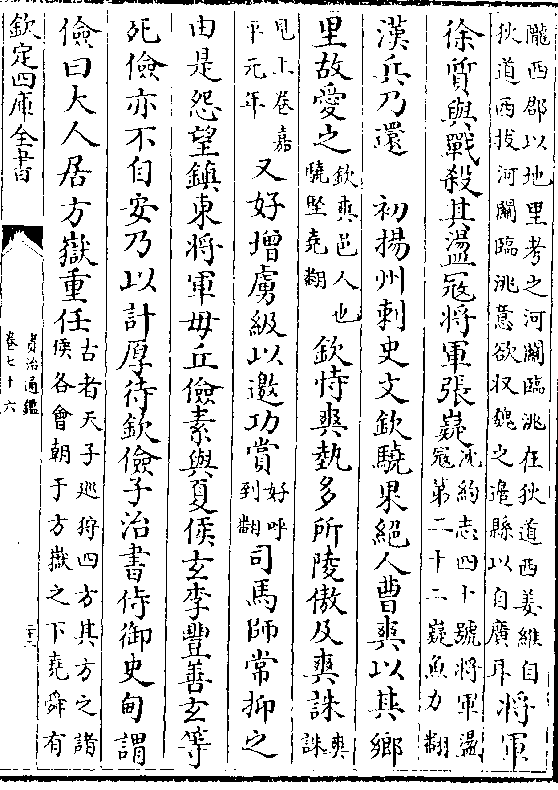 隴西郡以地里考之河關臨洮在狄道西姜維自
狄道西拔河關臨洮意欲収魏之邉縣以自廣耳將軍
徐質與戰殺其盪冦將軍張嶷沈約志四十號將軍盪
冦第二十二嶷魚力翻
漢兵乃還　初揚州刺史文欽驍果絕人曹爽以其鄉
里故愛之欽爽邑人也
驍堅堯翻　欽恃爽勢多所陵傲及爽誅爽誅
見上卷嘉
平元年　又好增虜級以邀功賞好呼
到翻司馬師常抑之
由是怨望鎮東將軍毋丘儉素與夏侯玄李豐善玄等
死儉亦不自安乃以計厚待欽儉子治書侍御史甸謂
儉曰大人居方嶽重任古者天子巡狩四方其方之諸
侯各會朝于方嶽之下堯舜有
欽定四庫全書
資治通鑑
卷七十六
二十二